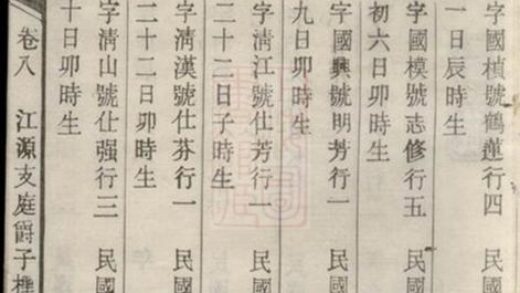 字國楨號鶴蓮行四　民國
一日辰時生
字國模號志修行五　民國
初六日卯時生
字國興號明芳行一　民國
九日卯時生
字清江號仕芳行一　民國
二十二日子時生
字清漢號仕芬行一　民國
二十二日卯時生
字清山號仕强行三　民國
十日卯時生
卷八　江源支庭爵子